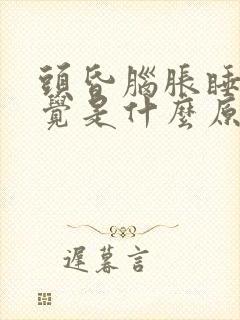 頭昏腦脹睡
覺是什麼原
遲暮言